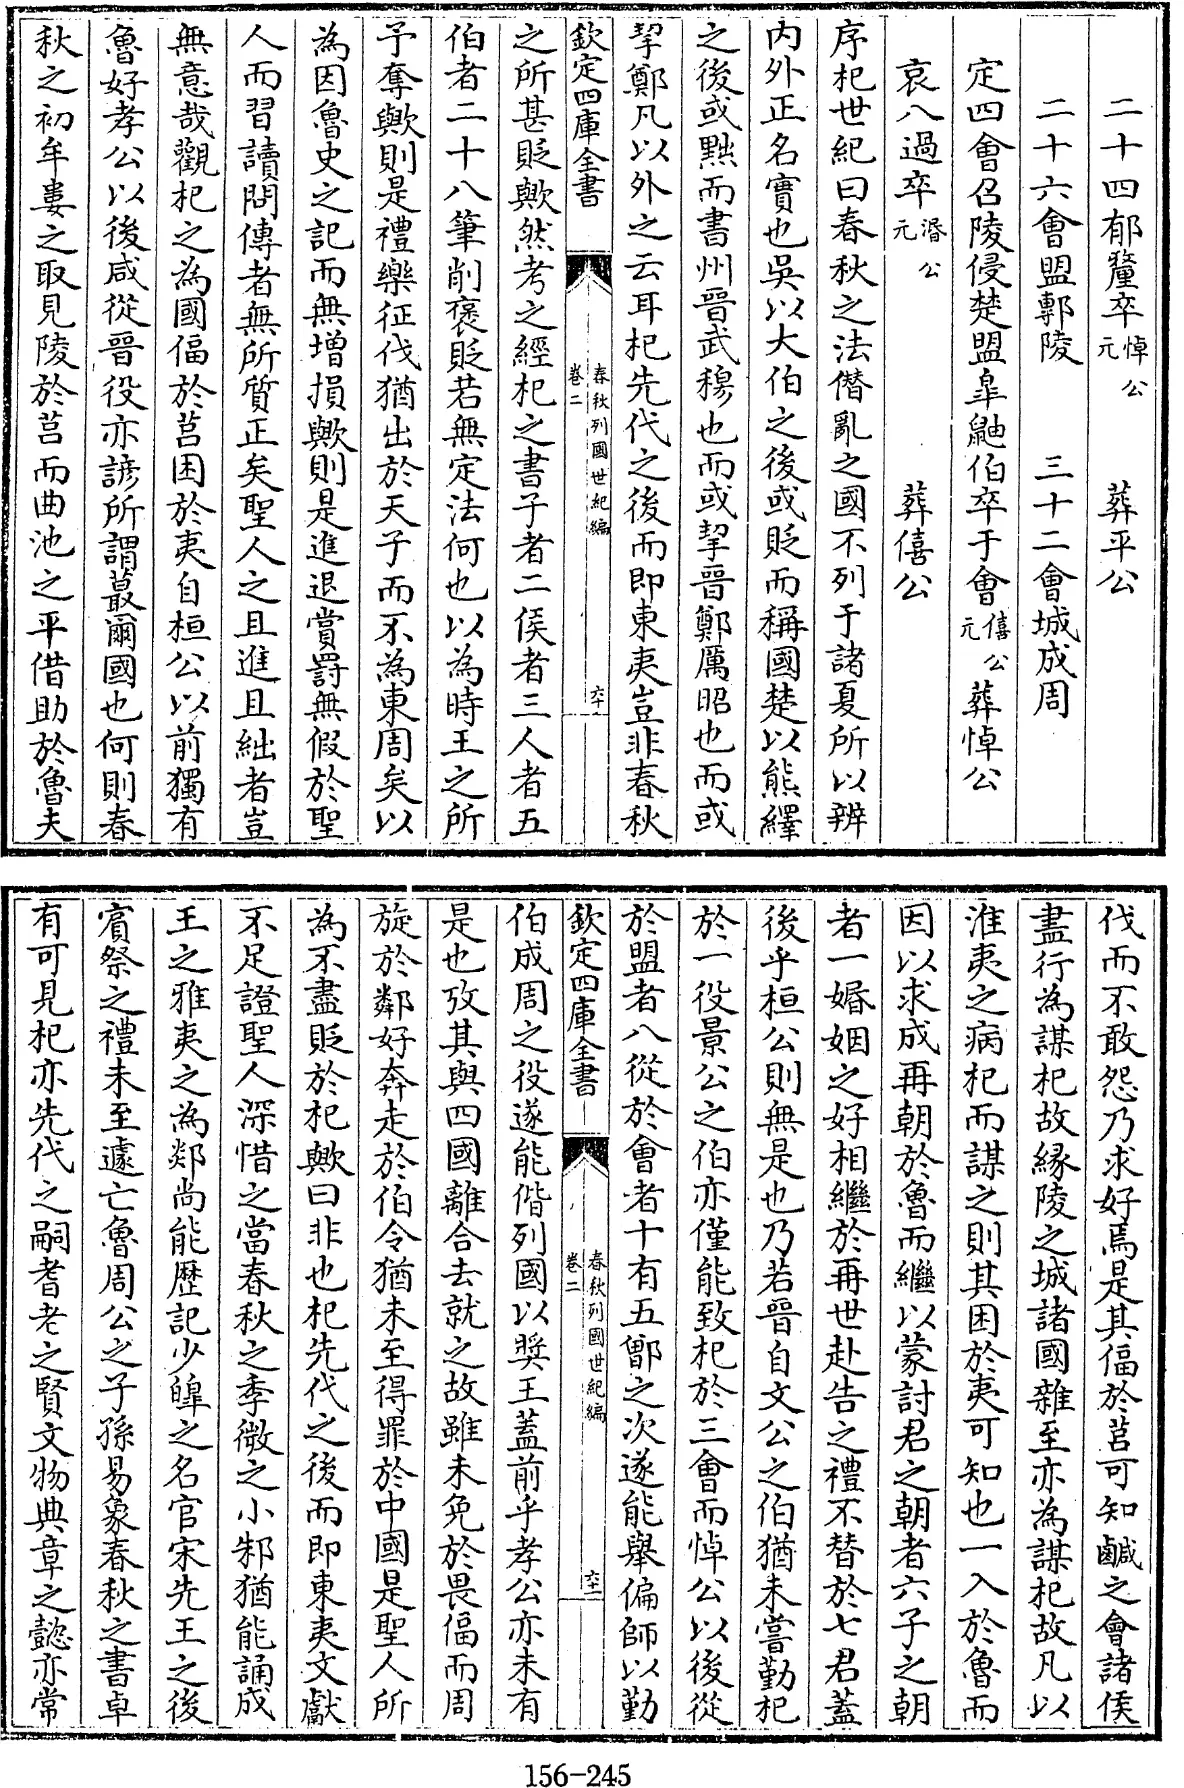 二十四郁釐卒悼公元　葬平公
二十六會盟鄟陵　三十二會城成周
定四會召陵侵楚盟臯鼬伯卒于會僖公元葬悼公
哀八過卒湣公元　葬僖公
序杞世紀曰春秋之法僭亂之國不列于諸夏所以辨
内外正名實也吳以大伯之後或貶而稱國楚以熊繹
之後或黜而書州晉武穆也而或挈晉鄭厲昭也而或
挈鄭凡以外之云耳杞先代之後而即東夷豈非春秋
欽定四庫全書　春秋列國世紀編卷二　六十
之所甚貶歟然考之經杞之書子者二侯者三人者五
伯者二十八筆削褒貶若無定法何也以為時王之所
予奪歟則是禮樂征伐猶出於天子而不為東周矣以
為因魯史之記而無增損歟則是進退賞罰無假於聖
人而習讀問傳者無所質正矣聖人之且進且絀者豈
無意哉觀杞之為國偪於莒困於夷自桓公以前獨有
魯好孝公以後咸從晉役亦諺所謂蕞爾國也何則春
秋之初牟婁之取見陵於莒而曲池之平借助於魯夫
伐而不敢怨乃求好焉是其偪於莒可知鹹之會諸侯
盡行為謀杞故緣陵之城諸國雜至亦為謀杞故凡以
淮夷之病杞而謀之則其困於夷可知也一入於魯而
因以求成再朝於魯而繼以蒙討君之朝者六子之朝
者一婚姻之好相繼於再世赴告之禮不替於七君蓋
後乎桓公則無是也乃若晉自文公之伯猶未嘗勤杞
於一役景公之伯亦僅能致杞於三會而悼公以後從
於盟者八從於會者十有五鄫之次遂能舉偏師以勤
欽定四庫全書　春秋列國世紀編卷二　六十一
伯成周之役遂能偕列國以奬王蓋前乎孝公亦未有
是也攷其與四國離合去就之故雖未免於畏偪而周
旋於鄰好奔走於伯令猶未至得罪於中國是聖人所
為不盡貶於杞歟曰非也杞先代之後而即東夷文獻
不足證聖人深惜之當春秋之季微之小邾猶能誦成
王之雅夷之為郯尚能歷記少皥之名官宋先王之後
賓祭之禮未至遽亡魯周公之子孫易象春秋之書卓
有可見杞亦先代之嗣耆老之賢文物典章之懿亦常
156-245